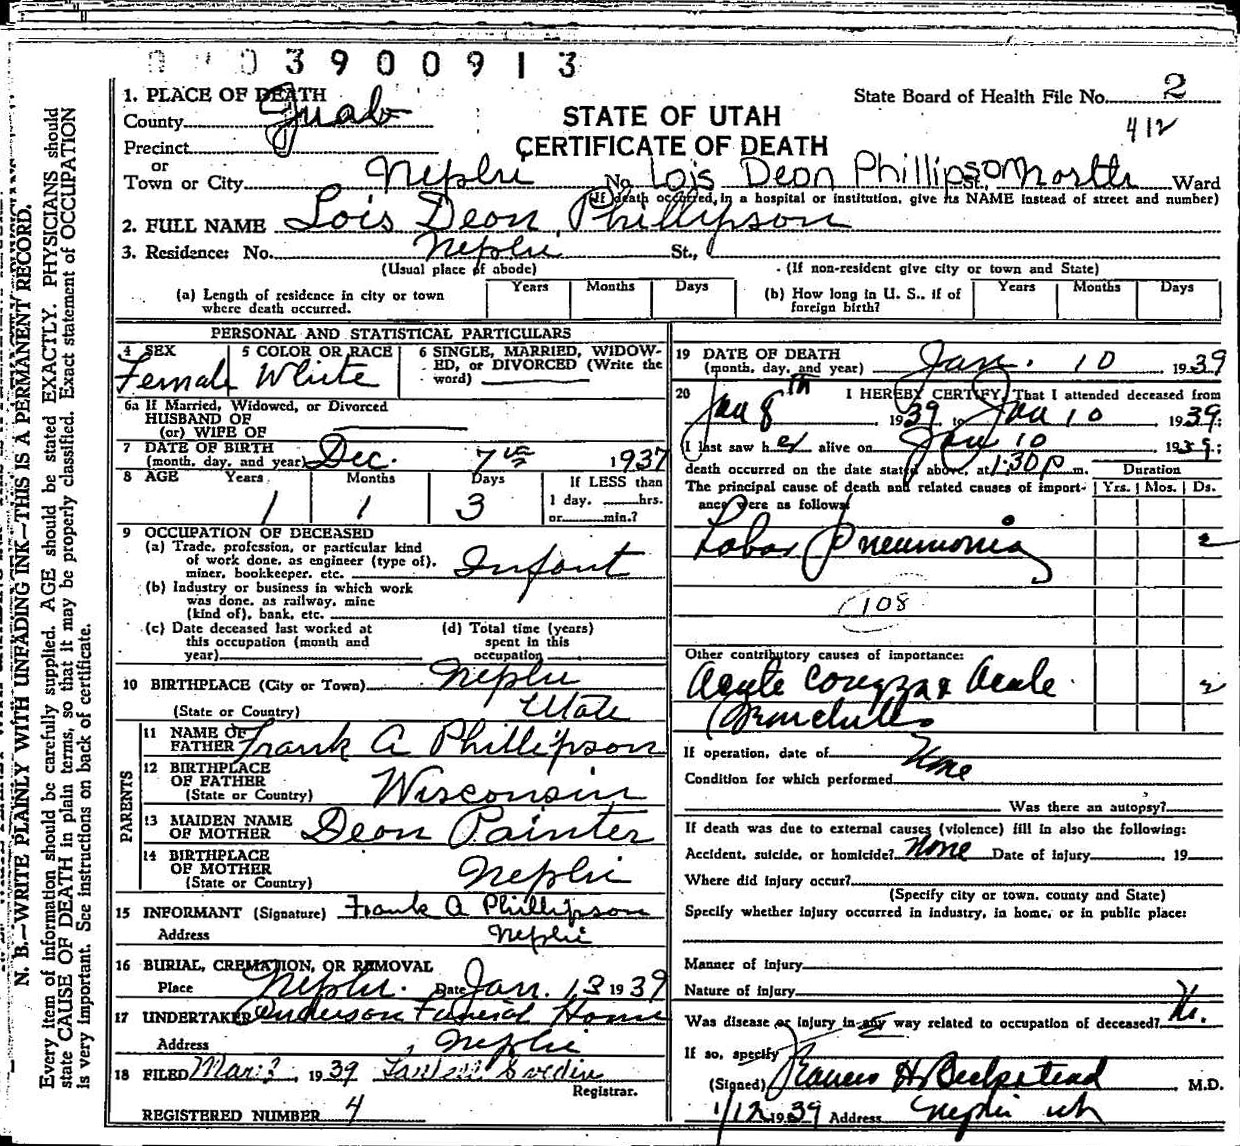 0 0 0 3 9 0 0 9 1 3
1. PLACE OF DEATH
County Juab
State Board of Health File No. 2
412
STATE OF UTAH
CERTIFICATE OF DEATH
Precinct
or
Town or City Nephi No. Lois Deon Phillipson St., North Ward
(If death occurred, in a hospital or institution, give its NAME instead of street and number)
2. FULL NAME Lois Deon Phillipson
3. Residence: No. Nephi St.,
(Usual place of abode) (If non-resident give city or town and State)
(a) Length of residence in city or town where death occurred. Years Months Days
(b) How long in U. S., if of foreign birth? Years Months Days
PERSONAL AND STATISTICAL PARTICULARS
4 SEX Female
5 COLOR OR RACE White
6 SINGLE, MARRIED, WIDOWED, or DIVORCED (Write the word)
6a If Married, Widowed, or Divorced
HUSBAND OF
(or) WIFE OF
7 DATE OF BIRTH
(month, day, and year) Dec. 7th 1937
8 AGE Years 1 Months 1 Days 3 If LESS than
1 day, hrs.
or min.?
9 OCCUPATION OF DECEASED
(a) Trade, profession, or particular kind
of work done, as engineer (type of),
miner, bookkeeper, etc. Infant
(b) Industry or business in which work
was done, as railway, mine
(kind of), bank, etc.
(c) Date deceased last worked at
this occupation (month and
year)
(d) Total time (years)
spent in this
occupation
10 BIRTHPLACE (City or Town) Nephi
(State or Country) Utah
PARENTS
11 NAME OF
FATHER Frank A Phillipson
12 BIRTHPLACE
OF FATHER
(State or Country) Wisconsin
13 MAIDEN NAME
OF MOTHER Deon Painter
14 BIRTHPLACE
OF MOTHER
(State or Country) Nephi
15 INFORMANT (Signature) Frank A Phillipson
Address Nephi
16 BURIAL, CREMATION, OR REMOVAL
Place Nephi. Date Jan. 13 1939
17 UNDERTAKER Anderson Funeral Home
Address Nephi
18 FILED Mar 3, 1939
Registrar.
REGISTERED NUMBER 4
19 DATE OF DEATH
(month, day, and year) Jan. 10 1939
20 I HEREBY CERTIFY, That I attended deceased from
Jan 8th 1939 to Jan 10 1939;
I last saw her alive on Jan 10 1939;
death occurred on the date stated above, at 1:30 p m. Duration
The principal cause of death and related causes of importance were as follows: Yrs. Mos. Ds.
Lobar Pneumonia 2
108
Other contributory causes of importance:
Acute Coryza & Acute 2
Bronchitis
If operation, date of None
Condition for which performed
Was there an autopsy?
If death was due to external causes (violence) fill in also the following:
Accident, suicide, or homicide? None Date of injury 19
Where did injury occur?
(Specify city or town, county and State)
Specify whether injury occurred in industry, in home, or in public place:
Manner of Injury
Nature of Injury
Was disease or injury in any way related to occupation of deceased? No.
If so, specify
(Signed) Francis H Beckstead M.D.
1/12 1939 Address Nephi Ut
N. B.—WRITE PLAINLY WITH UNFADING INK—THIS IS A PERMANENT RECORD.
Every item of information should be carefully supplied. AGE should be stated EXACTLY. PHYSICIANS should
state CAUSE OF DEATH in plain terms, so that it may be properly classified. Exact statement of OCCUPATION
is very important. See instructions on back of certificate.